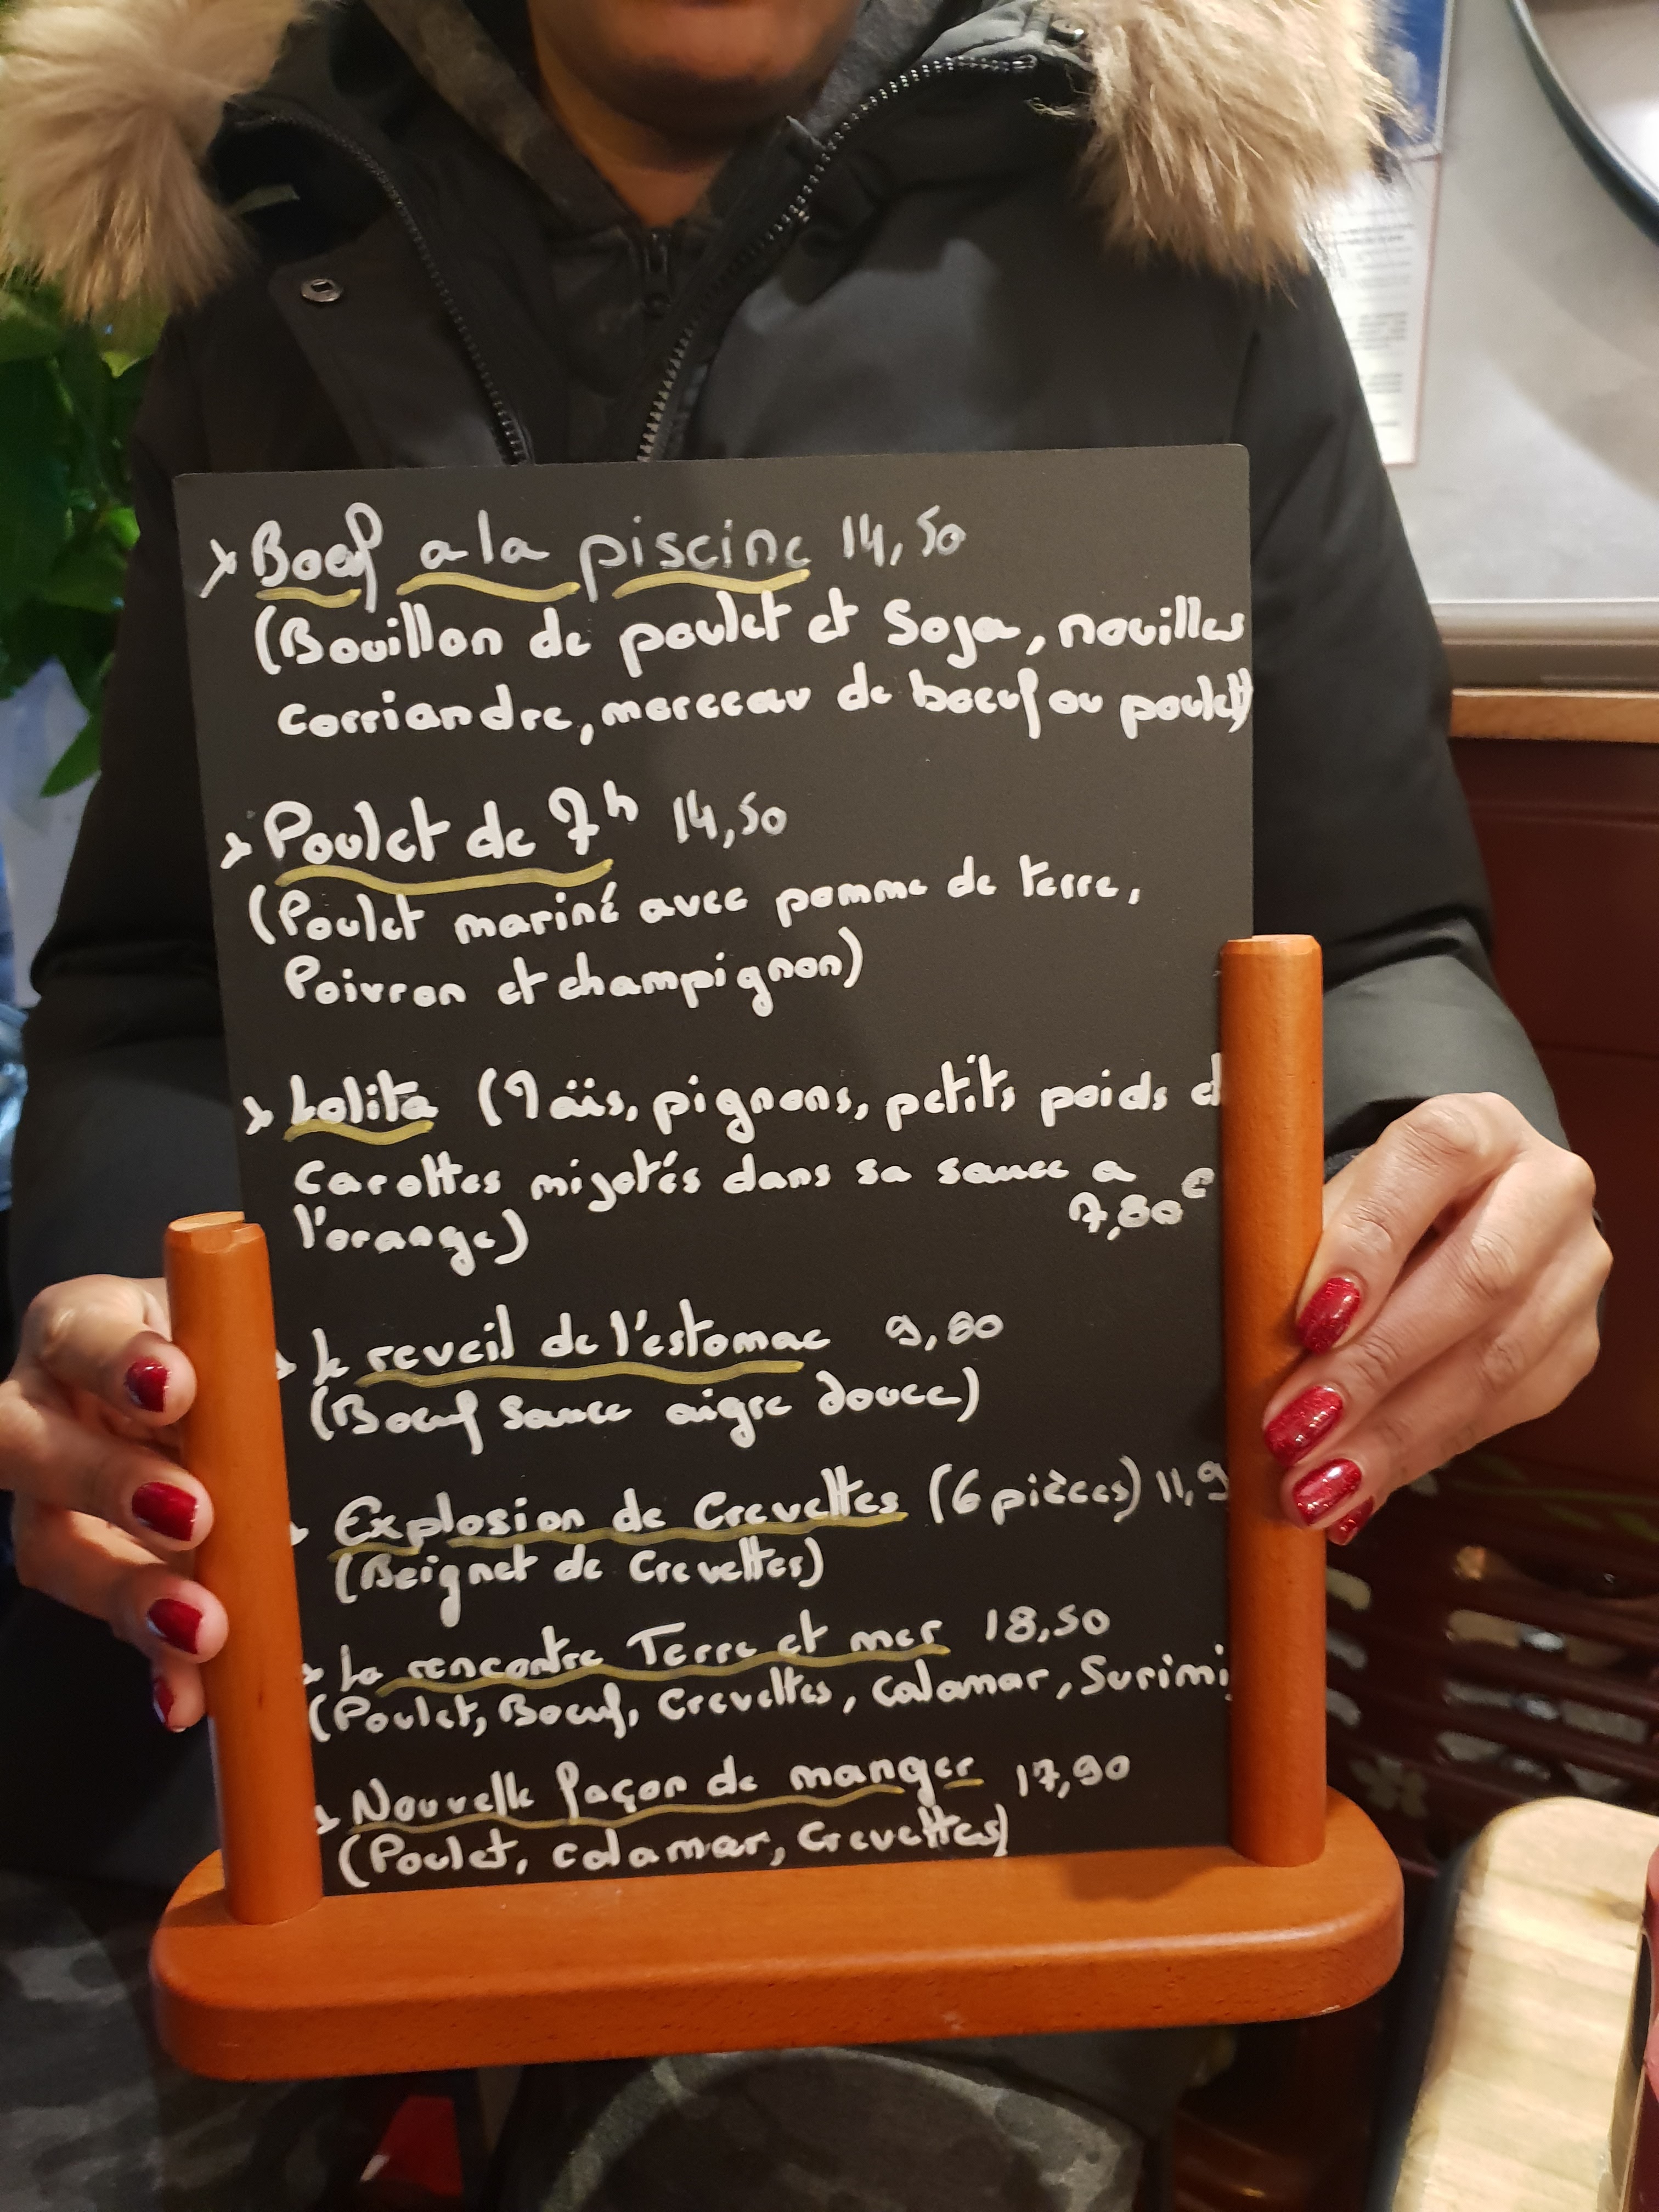 Boeuf a la piscine 14,50
(Bouillon de poulet et Soja, nouilles
corriandre, morceeau de boeuf ou poulet)
Poulet de 7h 14,50
(Poulet mariné avec pomme de terre,
Poivron et champignon)
Lolita (Maïs, pignons, petits poids et
Carottes mijotés dans sa sauce a
7,80€
l'orange)
Le reveil de l'estomac 9,80
(Boeuf sauce aigre douce)
Explosion de Crevettes (6 pièces) 11,9
(Beignet de Crevettes)
La rencontre Terre et mer 18,50
(Poulet, Boeuf, Crevettes, Calamar, Surimi
Nouvelle façon de manger 17,90
(Poulet, calamar, Crevettes)